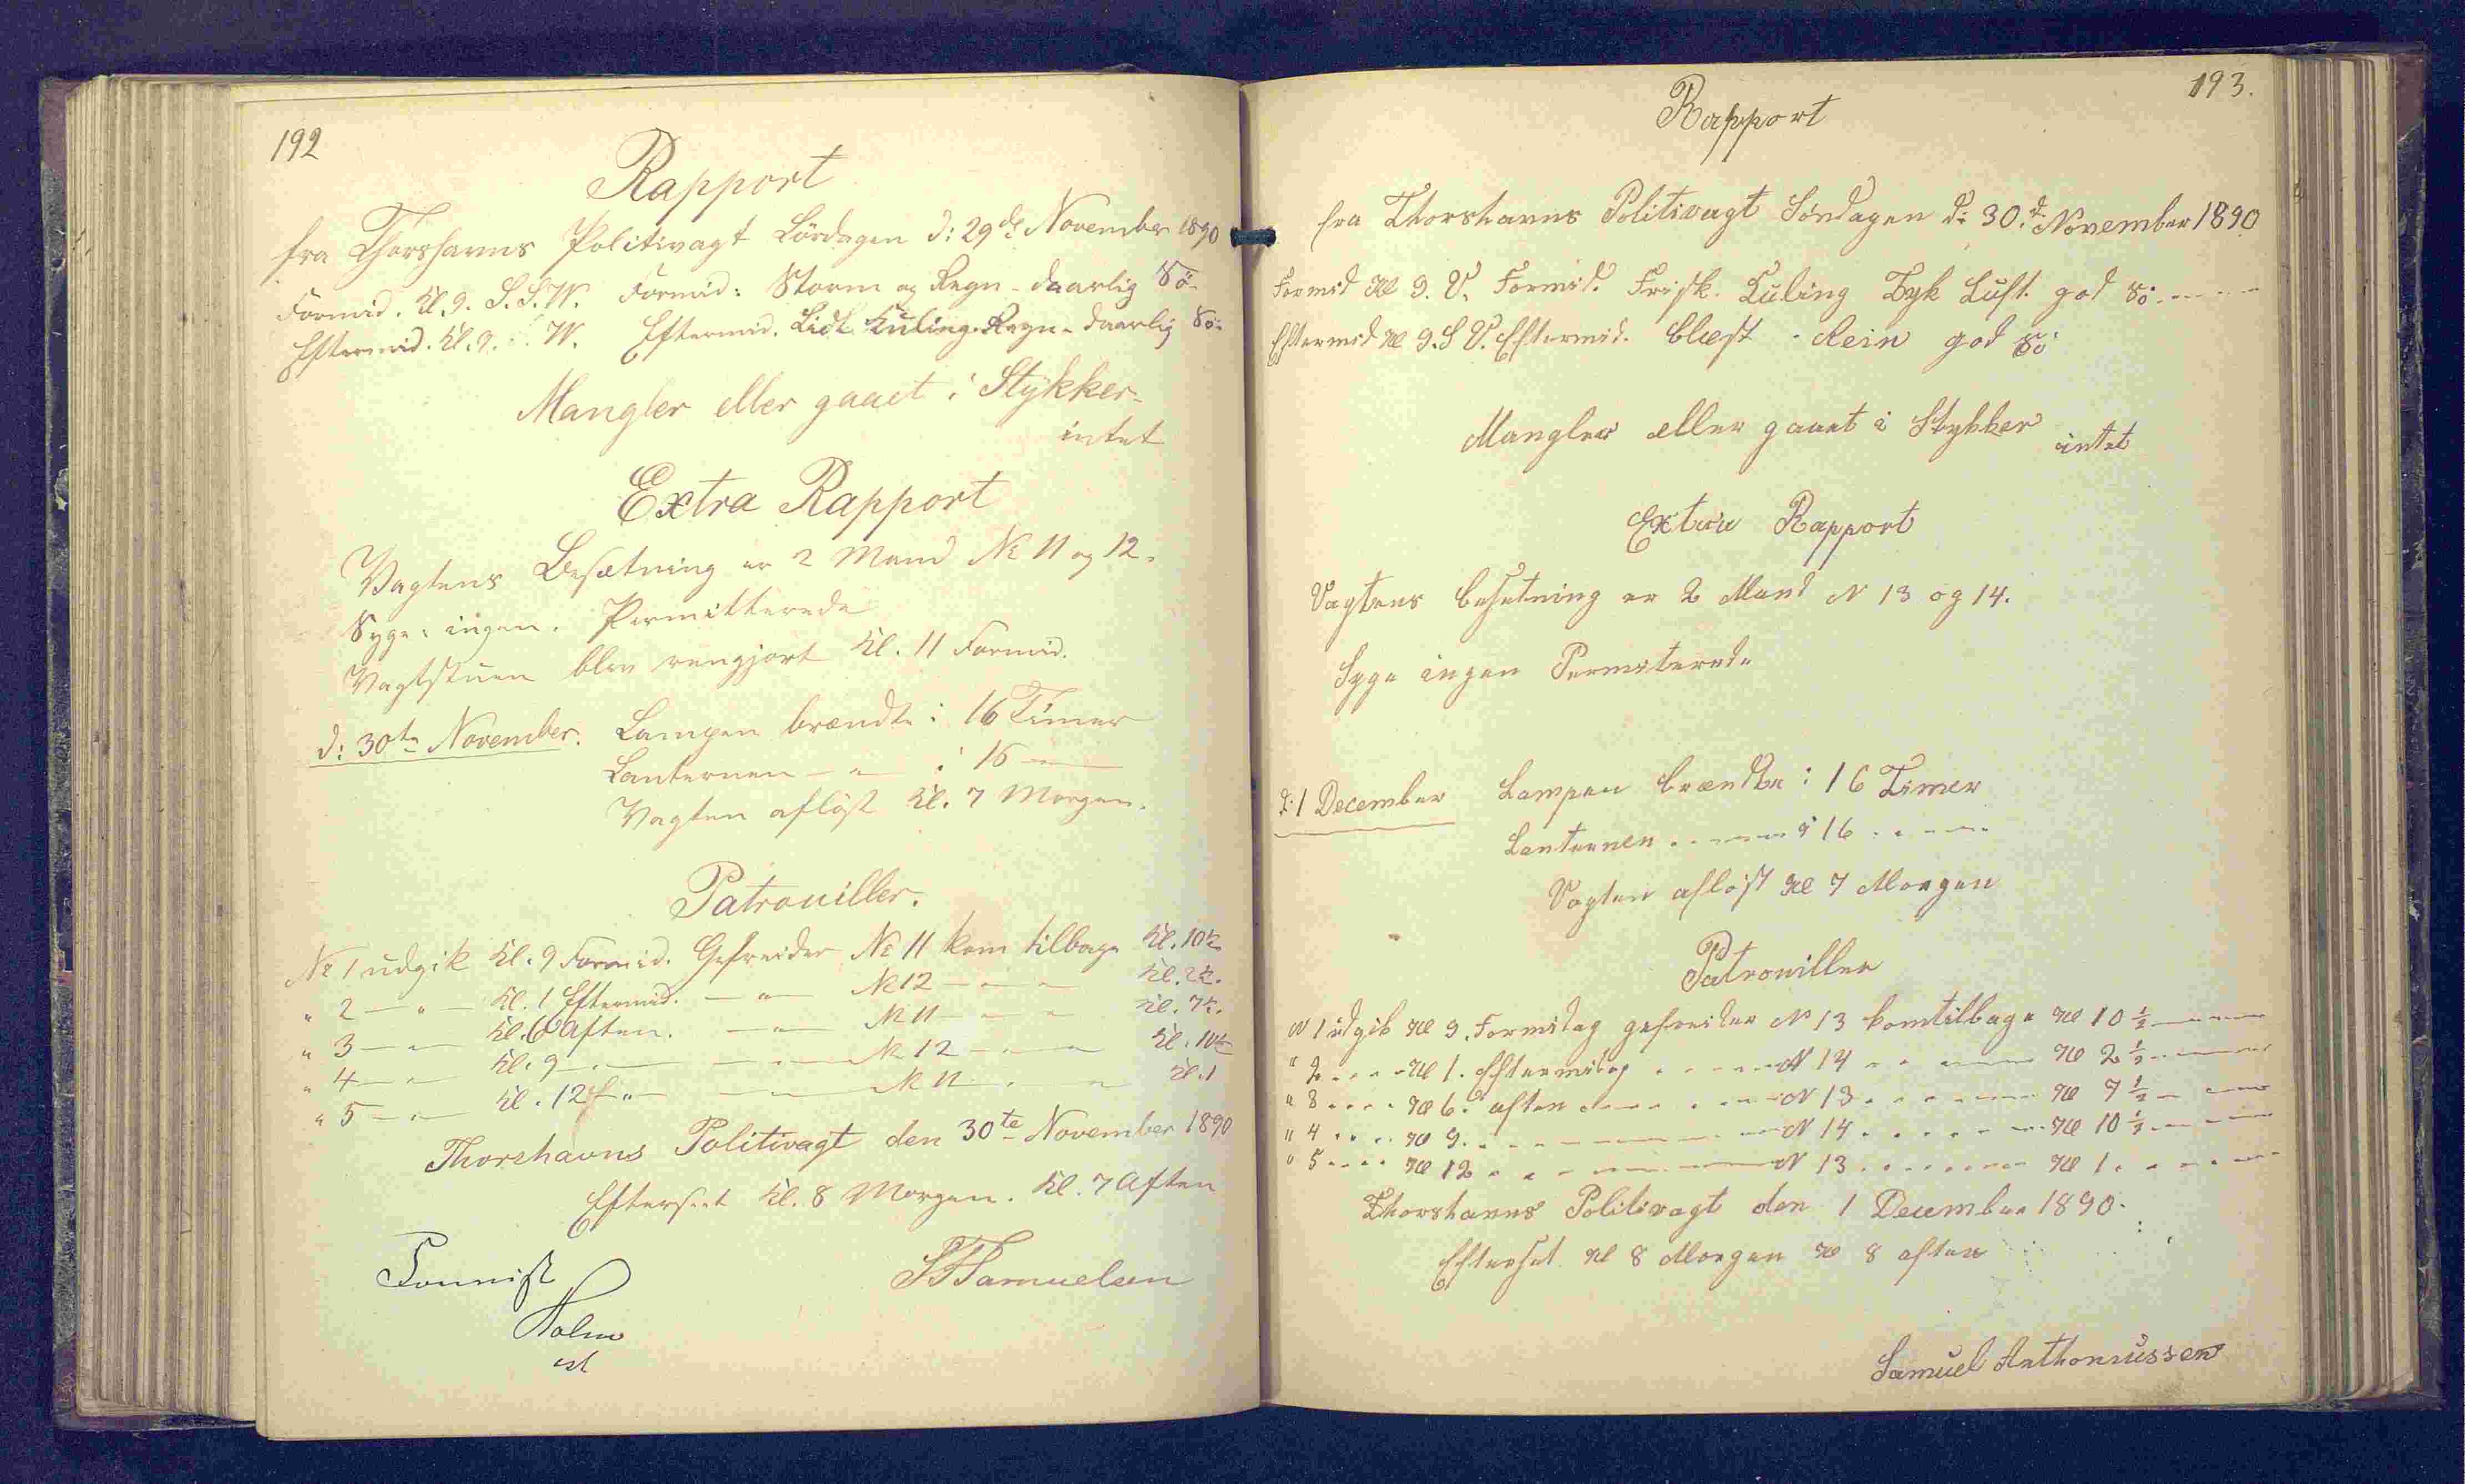 192
Rapport
fra Thorshavns Politivagt Lördagen d: 29de November 1890
Formid. Kl. 9. S.S.W. Formid: Storm og Regn - daarlig Sö-
Eftermid. Kl. 9. W. Eftermid. Lidt Kuling. Regn - daarlig Sö-
Mangler eller gaaet i Stykker-
intet
Extra Rapport
Vagtens Besætning er 2 Mand No 11 og 12.
Syge: ingen. Permitterede
Vagtstuen blev rengjort Kl. 11 Formid.
d: 30te November. Lampen brændte i 16 Timer
Lanternen — " — i 16 — " —
Vagten aflöst Kl. 7 Morgen.
Patrouiller.
No 1 udgik Kl. 9 Formid. Gefreider No 11 kom tilbage Kl. 10½
" 2 — " — Kl. 1 Eftermid. — " — No 12 — " — Kl. 2½.
" 3 — " — Kl. 6 Aften. — " — No 11 — " — Kl. 7½.
" 4 — " — Kl. 9 — " — — " — No 12 — " — Kl. 10½
" 5 — " — Kl. 12 — " — — " — No 11 — " — Kl. 1
Thorshavns Politivagt den 30te November 1890
Efterseet Kl. 8 Morgen. Kl. 7 Aften
Samuelsen
Holm
193.
Rapport
fra Thorshavns Politivagt Söndagen d: 30.d November 1890
Formid Kl 9. V. Formid. Frisk. Kuling Tyk Luft. god Sö
Eftermid Kl 9. S V. Eftermid. blæst - Rein god Sö
Mangler eller gaaet i Stykker intet
Extra Rapport
Vagtens besetning er 2 Mand N 13 og 14.
Syge ingen Permiterede
d. 1 December Lampen brændte i 16 Timer
Lanternen - - - - i 16 - - - -
Vagten aflöst Kl 7 Morgen
Patrouiller
N 1 udgik Kl 9. Formidag gefreider N 13 komtilbage Kl 10 ½
" 2 - - - Kl 1. Eftermidag - - - N 14 - - - Kl 2 ½
" 3 - - - Kl 6. aften - - - N 13 - - - Kl 7 ½
" 4 - - - Kl 9. - - - N 14 - - - Kl 10 ½
" 5 - - - Kl 12 - - - N 13 - - - Kl 1
Thorshavns Politivagt den 1 December 1890.
Efterset Kl 8 Morgen Kl 8 aften
Samuel Anthoniussen